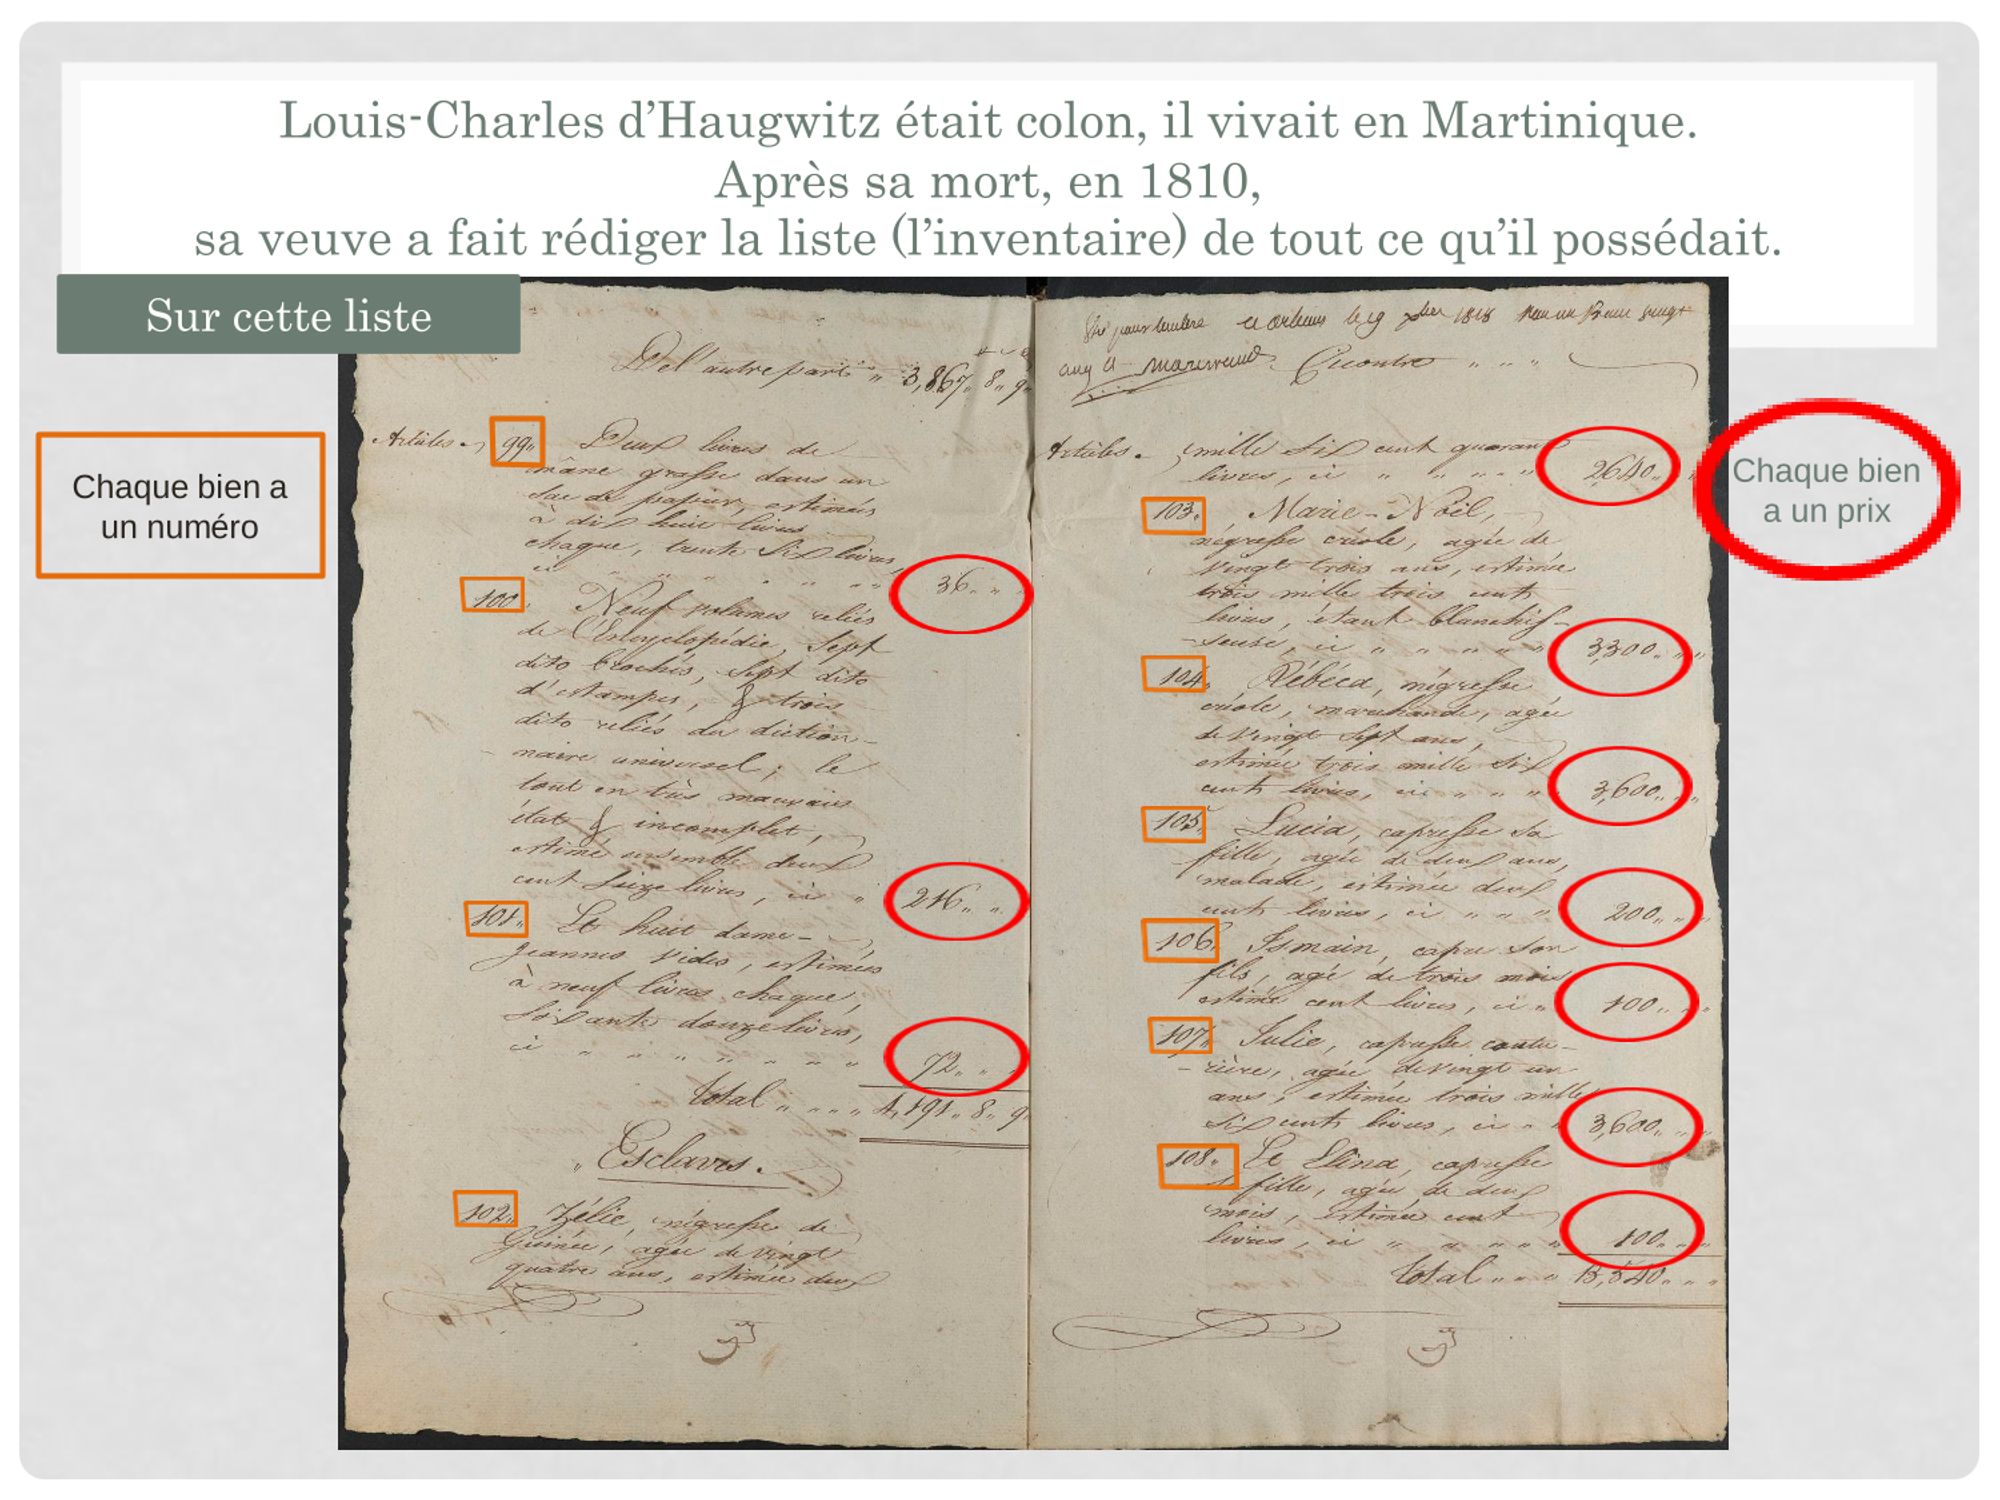 Louis-Charles d’Haugwitz était colon, il vivait en Martinique.
Après sa mort, en 1810,
sa veuve a fait rédiger la liste (l’inventaire) de tout ce qu’il possédait.
Sur cette liste
Chaque bien a
un numéro
Del'autre part " 3,867,, 8,, 9,,
Articles. 99,, Deux livres de
mâne grasse dans un
sac de papier, estimés
à dix huit livres
chaque, trente six livres,
ci " " " " " " 36,, "
100. Neuf volumes reliés
de l'Encyclopédie, Sept
dito brochés, Sept dito
d'estampes, & trois
dito reliés du diction-
naire universel; le
tout en très mauvais
état & incomplet,
estimé ensemble deux
cent Seize livres, ci " 216,, "
101,, Et huit dame-
jeannes vides, estimées
à neuf livres chaque,
Soixante douze livres,
ci " " " " " " " 72,, "
Total " " " " 4,191,, 8,, 9,,
Esclaves.
102,, Zélie, négresse de
Guinée, agée de vingt
quatre ans, estimée deux
1818
Cicontre " " "
Articles. mille six cent quarante
livres, ci " " " " 2,640,,
103,, Marie-Noël,
négresse créole, agée de
vingt trois ans, estimée
trois mille trois cents
livres, étant blanchis-
-seuse, ci " " " " " 3,300,, "
104,, Rébéca, négresse
créole, marchande, agée
de vingt sept ans,
estimée trois mille six
cents livres, ci " " " 3,600,, "
105,, Lucia, capresse sa
fille, agée de deux ans,
malade, estimée deux
cents livres, ci " " " 200,, "
106,, Ismain, capre son
fils, agé de trois mois
estimé cent livres, ci " 100,, "
107,, Julie, capresse coutu-
-rière, agée de vingt un
ans, estimée trois mille
six cents livres, ci " " 3,600,, "
108,, Et Elina, capresse
fille, agée de deux
mois, estimée cent
livres, ci " " " " " 100,, "
Total " " " 13,540,, "
Chaque bien
a un prix